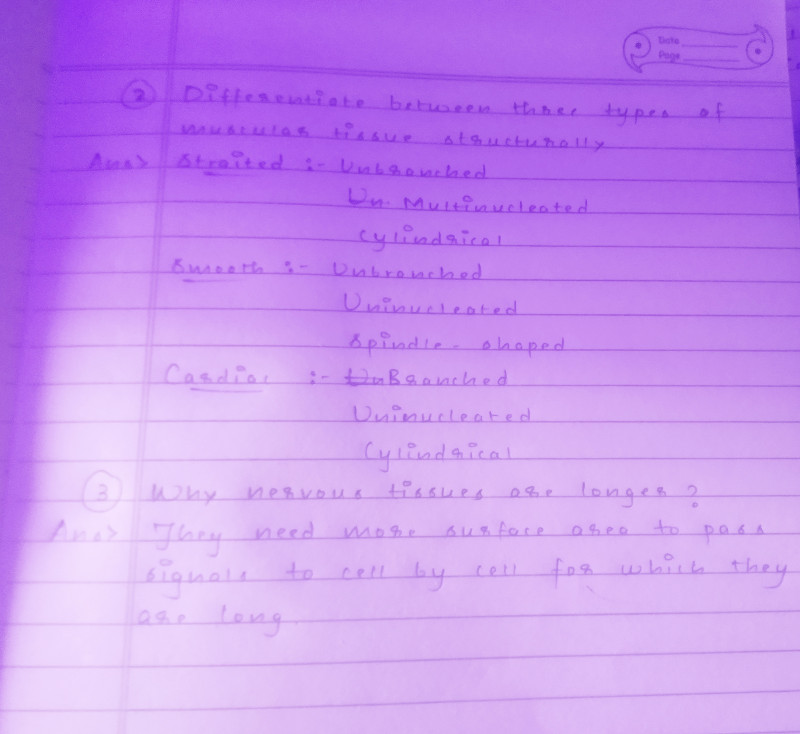 Date
Page
2 Differentiate between three types of
muscular tissue structurally
Ans> Straited :- Unbranched
Un. Multinucleated
Cylindrical
Smooth :- Unbranched
Uninucleated
Spindle - shaped
Cardiac :- UnBranched
Uninucleated
Cylindrical
3 Why nervous tissues are longer ?
Ans> They need more surface area to pass
signals to cell by cell for which they
are long